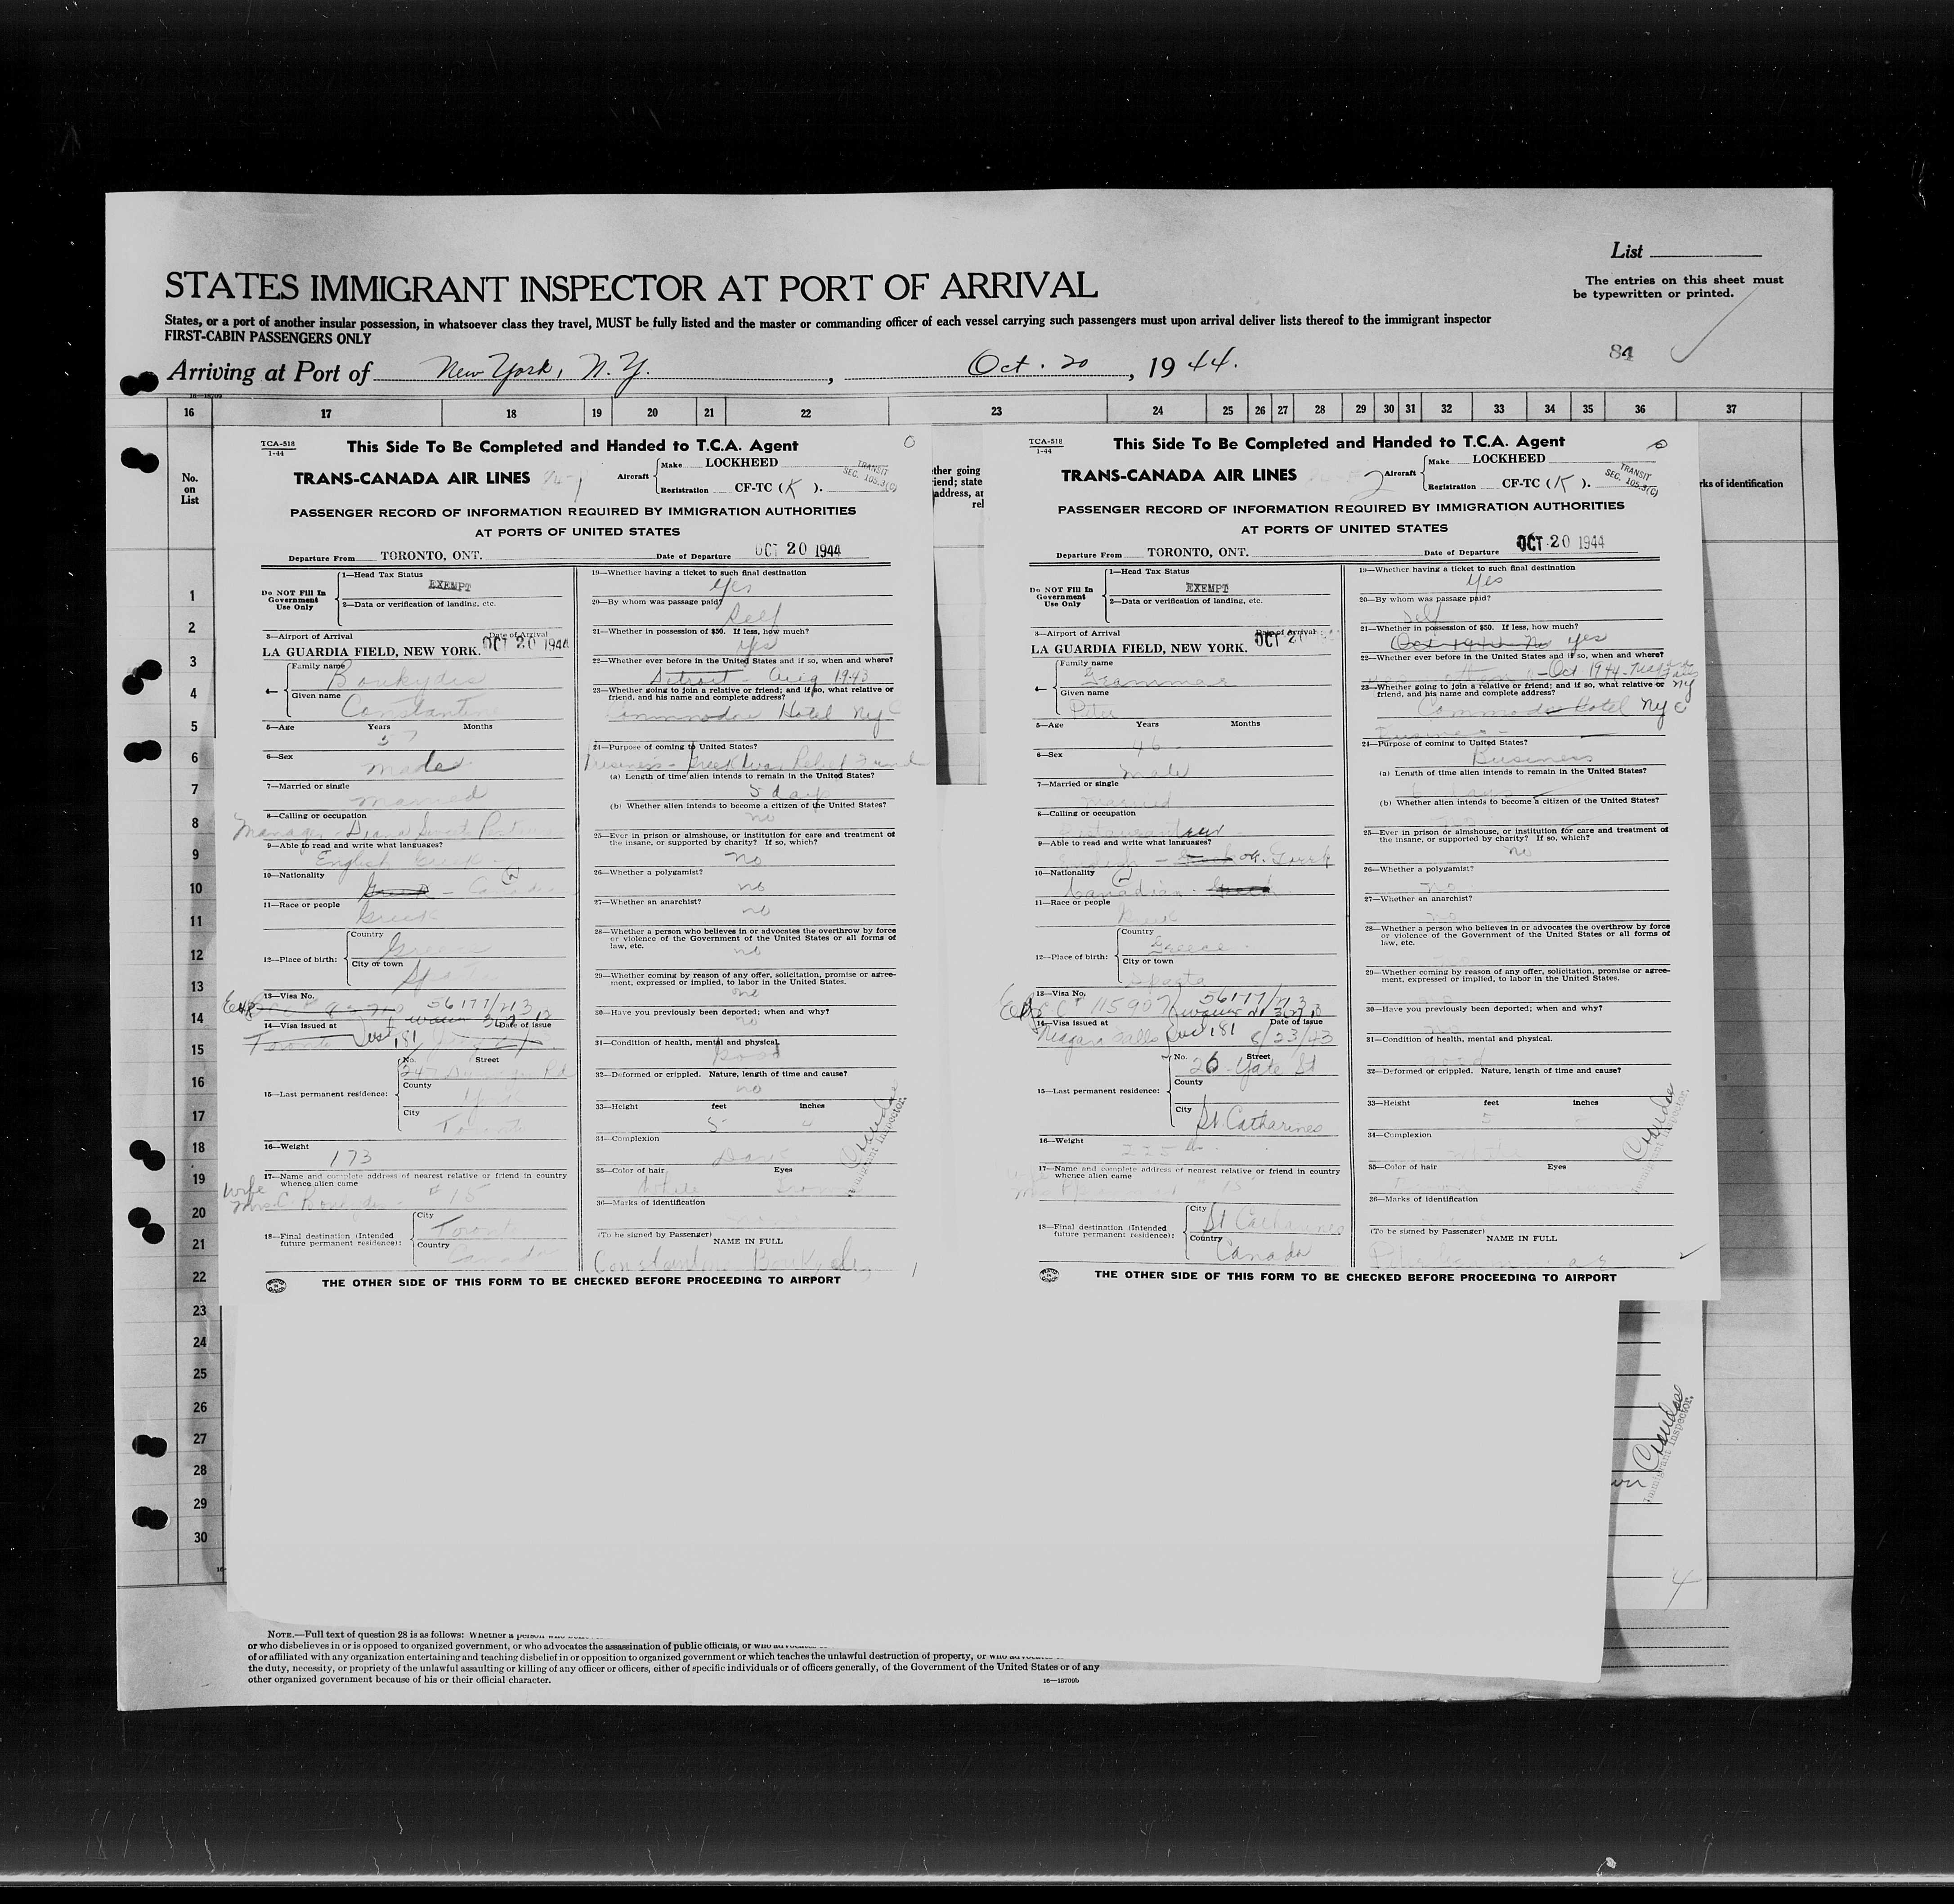 List
STATES IMMIGRANT INSPECTOR AT PORT OF ARRIVAL
The entries on this sheet must
be typewritten or printed.
States, or a port of another insular possession, in whatsoever class they travel, MUST be fully listed and the master or commanding officer of each vessel carrying such passengers must upon arrival deliver lists thereof to the immigrant inspector
FIRST-CABIN PASSENGERS ONLY
84
Arriving at Port of New York, N.Y., Oct. 20, 1944.
16 17 18 19 20 21 22 23 24 25 26 27 28 29 30 31 32 33 34 35 36 37
No.
on
List
1
2
3
4
5
6
7
8
9
10
11
12
13
14
15
16
17
18
19
20
21
22
23
24
25
26
27
28
29
30
TCA-518
1-44
This Side To Be Completed and Handed to T.C.A. Agent
TRANS-CANADA AIR LINES
Aircraft
Make LOCKHEED
Registration CF-TC (K).
TRANSIT
SEC. 105.3(C)
PASSENGER RECORD OF INFORMATION REQUIRED BY IMMIGRATION AUTHORITIES
AT PORTS OF UNITED STATES
Departure From TORONTO, ONT. Date of Departure OCT 20 1944
Do NOT Fill In
Government
Use Only
1—Head Tax Status
EXEMPT
2—Data or verification of landing, etc.
3—Airport of Arrival Date of Arrival
LA GUARDIA FIELD, NEW YORK. OCT 20 1944
4—
Family name
Boukydis
Given name
Constantine
5—Age Years Months
57
6—Sex
male
7—Married or single
married
8—Calling or occupation
Manager Diana Sweets
9—Able to read and write what languages?
English Greek
10—Nationality
Greek - Canadian
11—Race or people
Greek
12—Place of birth:
Country
Greece
City or town
Sparta
13—Visa No.
56177/213
14—Visa issued at Date of issue
Toronto
181
15—Last permanent residence:
No. Street
Rd
County
York
City
Toronto
16—Weight
173
17—Name and complete address of nearest relative or friend in country
whence alien came
Wife
Mrs. C. Boukydis # 15
18—Final destination (Intended
future permanent residence):
City
Toronto
Country
Canada
19—Whether having a ticket to such final destination
Yes
20—By whom was passage paid?
Self
21—Whether in possession of $50. If less, how much?
Yes
22—Whether ever before in the United States and if so, when and where?
Detroit - Aug 1943
23—Whether going to join a relative or friend; and if so, what relative or
friend, and his name and complete address?
Commodore Hotel NYC
24—Purpose of coming to United States?
Business - Greek War Relief Fund
(a) Length of time alien intends to remain in the United States?
5 days
(b) Whether alien intends to become a citizen of the United States?
no
25—Ever in prison or almshouse, or institution for care and treatment of
the insane, or supported by charity? If so, which?
no
26—Whether a polygamist?
no
27—Whether an anarchist?
no
28—Whether a person who believes in or advocates the overthrow by force
or violence of the Government of the United States or all forms of
law, etc.
no
29—Whether coming by reason of any offer, solicitation, promise or agree-
ment, expressed or implied, to labor in the United States.
no
30—Have you previously been deported; when and why?
no
31—Condition of health, mental and physical.
Good
32—Deformed or crippled. Nature, length of time and cause?
no
33—Height feet inches
5
34—Complexion
Dark
35—Color of hair Eyes
36—Marks of identification
(To be signed by Passenger) NAME IN FULL
Constantine Boukydis
Immigrant Inspector.
1
THE OTHER SIDE OF THIS FORM TO BE CHECKED BEFORE PROCEEDING TO AIRPORT
ther going
riend; state
address, an
rel
TCA-518
1-44
This Side To Be Completed and Handed to T.C.A. Agent
TRANS-CANADA AIR LINES 2
Aircraft
Make LOCKHEED
Registration CF-TC (K).
TRANSIT
SEC. 105.3(C)
PASSENGER RECORD OF INFORMATION REQUIRED BY IMMIGRATION AUTHORITIES
AT PORTS OF UNITED STATES
Departure From TORONTO, ONT. Date of Departure OCT 20 1944
Do NOT Fill In
Government
Use Only
1—Head Tax Status
EXEMPT
2—Data or verification of landing, etc.
3—Airport of Arrival Date of Arrival
LA GUARDIA FIELD, NEW YORK. OCT 20
4—
Family name
Grammar
Given name
Peter
5—Age Years Months
46
6—Sex
male
7—Married or single
married
8—Calling or occupation
Restauranteur
9—Able to read and write what languages?
English - Greek
10—Nationality
Canadian Greek
11—Race or people
Greek
12—Place of birth:
Country
Greece
City or town
Sparta
13—Visa No.
115907 56177/213
14—Visa issued at Date of issue
Niagara Falls 181 8/23/43
15—Last permanent residence:
No. Street
26 Yate St
County
City
St. Catharines
16—Weight
225
17—Name and complete address of nearest relative or friend in country
whence alien came
18—Final destination (Intended
future permanent residence):
City
St Catharines
Country
Canada
19—Whether having a ticket to such final destination
Yes
20—By whom was passage paid?
Self
21—Whether in possession of $50. If less, how much?
Yes
22—Whether ever before in the United States and if so, when and where?
Oct 1944 - Niagara Falls NY
23—Whether going to join a relative or friend; and if so, what relative or
friend, and his name and complete address?
Commodore Hotel NYC
Business
24—Purpose of coming to United States?
Business
(a) Length of time alien intends to remain in the United States?
days
(b) Whether alien intends to become a citizen of the United States?
25—Ever in prison or almshouse, or institution for care and treatment of
the insane, or supported by charity? If so, which?
no
26—Whether a polygamist?
no
27—Whether an anarchist?
no
28—Whether a person who believes in or advocates the overthrow by force
or violence of the Government of the United States or all forms of
law, etc.
29—Whether coming by reason of any offer, solicitation, promise or agree-
ment, expressed or implied, to labor in the United States.
30—Have you previously been deported; when and why?
31—Condition of health, mental and physical.
Good
32—Deformed or crippled. Nature, length of time and cause?
33—Height feet inches
5
34—Complexion
35—Color of hair Eyes
36—Marks of identification
(To be signed by Passenger) NAME IN FULL
Immigrant Inspector.
2
THE OTHER SIDE OF THIS FORM TO BE CHECKED BEFORE PROCEEDING TO AIRPORT
rks of identification
Immigrant Inspector.
4
NOTE.—Full text of question 28 is as follows: Whether a person who
or who disbelieves in or is opposed to organized government, or who advocates the assassination of public officials, or who
of or affiliated with any organization entertaining and teaching disbelief in or opposition to organized government or which teaches the unlawful destruction of property, or who
the duty, necessity, or propriety of the unlawful assaulting or killing of any officer or officers, either of specific individuals or of officers generally, of the Government of the United States or of any
other organized government because of his or their official character.
16—18709b